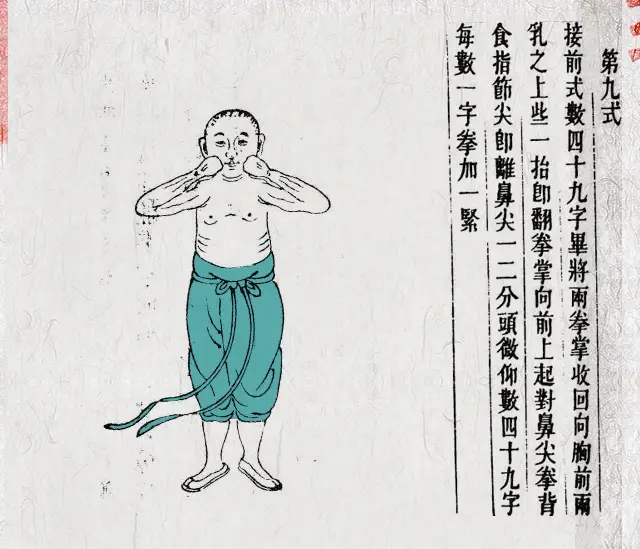 第九式
接前式數四十九字畢將兩拳掌收回向胸前兩
乳之上些一抬卽翻拳掌向前上起對鼻尖拳背
食指節尖卽離鼻尖一二分頭微仰數四十九字
每數一字拳加一緊